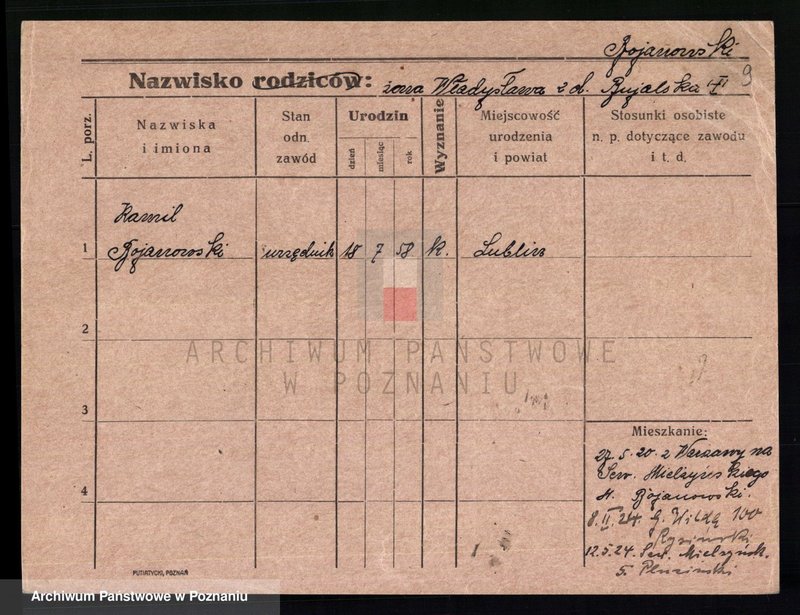 Bojanowski
Nazwisko rodziców: żona Władysława z d. Bujalska 9
L. porz.
Nazwiska i imiona
Stan odn. zawód
Urodzin
dzień
miesiąc
rok
Wyznanie
Miejscowość urodzenia i powiat
Stosunki osobiste n. p. dotyczące zawodu i t. d.
Kamil
1 Bojanowski urzędnik 18 7 58 k. Lublin
2
ARCHIWUM PAŃSTWOWE
W POZNANIU
3
Mieszkanie:
27.5.20 z Warszawy na
Sew. Mielżyńskiego
Bojanowski.
4
8.II.24 G. Wildą 100
12.5.24 Sew. Mielżyńsk.
5.
PUTIATYCKI, POZNAŃ
Archiwum Państwowe w Poznaniu